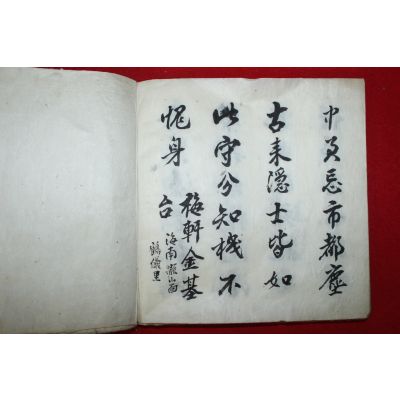 中更忘市都塵
古来隠士皆如
此守分知機不
愧身
梅軒金基
台
海南 山面
鶴儀里